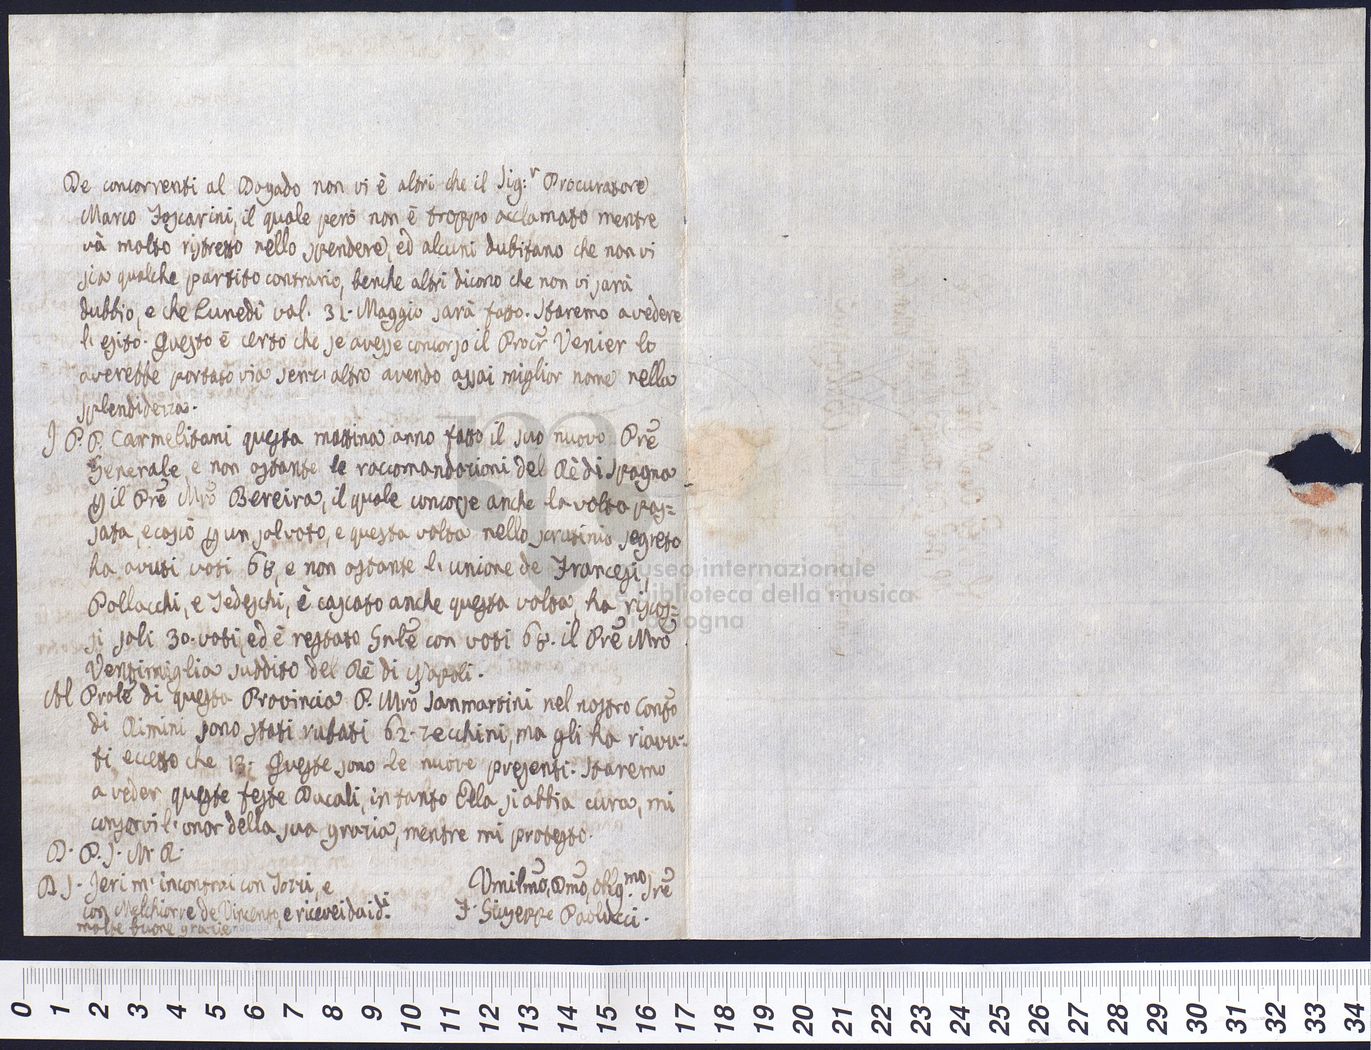 De concorrenti al Dogado non vi è altri che il Sig:r Procuratore
Marco Foscarini, il quale però non è troppo acclamato mentre
và molto ristretto nello spendere, ed alcuni dubitano che non vi
sia qualche partito contrario, benche altri dicono che non vi sarà
dubbio, e che Lunedì val. 31. Maggio sarà fatto. Staremo a vedere
l'esito. Questo è certo che se avesse concorso il Procr Venier lo
averebbe portato via senz'altro avendo assai miglior nome nella
splendidezza.
I P.P. Carmelitani questa mattina anno fatto il suo nuovo Prẽ
Generale e non ostante le raccomandazioni del Rè di Spagna
p il Prẽ Mrõ Bereira, il quale concorse anche la volta pas=
sata, e cascò p un sol voto, e questa volta nello scrutinio segreto
ha avuti voti 68, e non ostante l'unione de Francesi,
Pollacchi, e Tedeschi, è cascato anche questa volta, ha riscos=
si soli 30. voti, ed è restato Gnlẽ con voti 68. il Prẽ Mrõ
Ventimiglia suddito del Rè di Napoli.
Al Prolẽ di questa Provincia P. Mrõ Sanmartini nel nostro Contõ
di Rimini sono stati rubati 62. zecchini, ma gli ha riavu=
ti eccetto che 13. Queste sono le nuove presenti. Staremo
a veder queste feste Ducali, in tanto Ella si abbia cura, mi
conservi l'onor della sua grazia, mentre mi protesto.
D. P. S. M. R.
P.S. Ieri m'incontrai con
con Melchiorre de Vincento, e ricevei da idi
molte buone grazie
Umilmõ, Dmõ, Oblg:mo Srẽ
F. Giuseppe Paolucci.
museo internazionale
e biblioteca della musica
di bologna
0 1 2 3 4 5 6 7 8 9 10 11 12 13 14 15 16 17 18 19 20 21 22 23 24 25 26 27 28 29 30 31 32 33 34